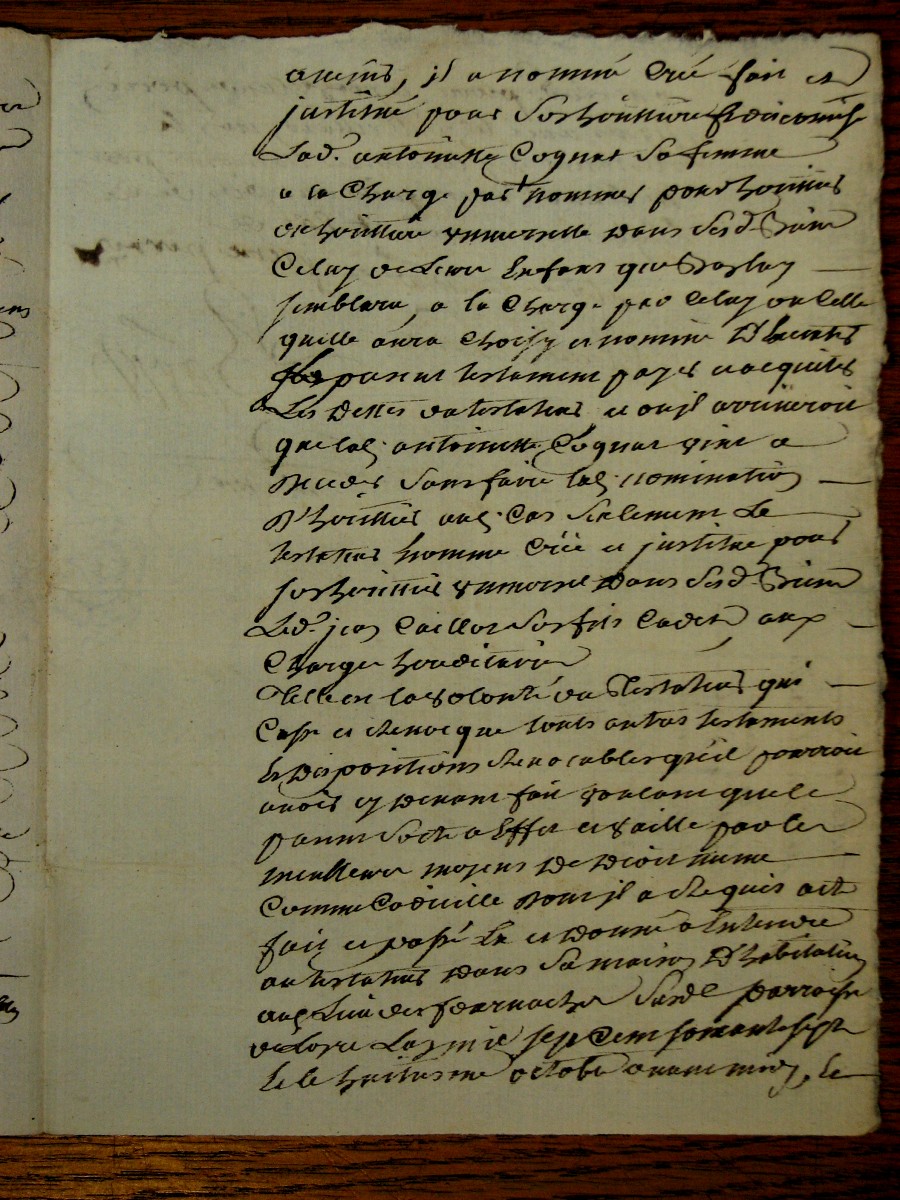 il a nommé créé fait et
justitué pour son hérittière fideicomise
Lad. antoinette Cognat sa femme
a la charge par nommer pour hérittier
ou hérittière universelle dans sesd. Biens
Celuy de leurs Enfans que Bon luy
semblera, a la charge par celuy ou Celle
quelle aura choisy et nommé D'Executer
le present testament payer et acquiter
Les dettes du testateur, et ou jl arriveroit
que lad. antoinette Cognat vint a
Deceder sans faire lad. nomination
D'hérittier aud. Cas seulement Le
testateur nomme créé et justitue pour
son hérittier universel dans sesd. Biens
Led. jean Caillot son fils Cadet, aux
Charges hereditaires
Telle est la volonté du Testateur qui
Casse et revocque touts autres testaments
et dispositions revocables qu'il pourroit
avoir cy devant fait voulant que le
present sorte a Effet et vaille par les
meilleurs moyens De Droit meme
Comme Codicille Dont jl a requis acte
fait et passé Lu et Donné a Entendre
au testateur Dans sa maison D'habitation
aud. Lieu des parroisse
mil sept Cent soixante sept
et le huitieme octobre avant midy, En